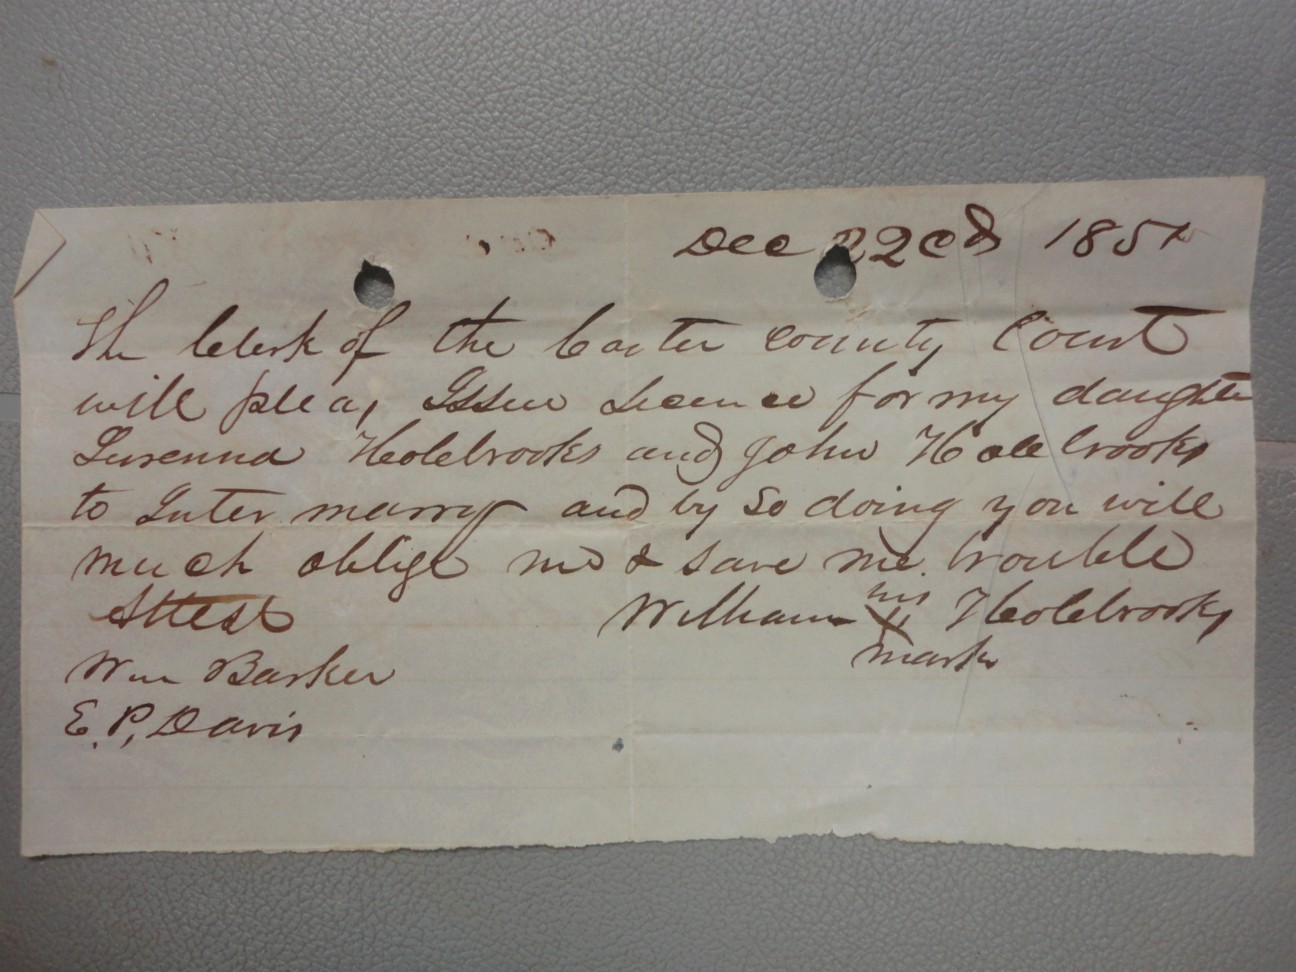 Dec 22cd 1851
The Clerk of the Carter County Court
will pleas Issue Licence for my daughter
Lurenna Holebrooks and John Holebrooks
to Inter marry and by So doing you will
much oblige me & save me trouble
Attest William his X Holebrooks
mark
Wm Barker
E. P. Davis